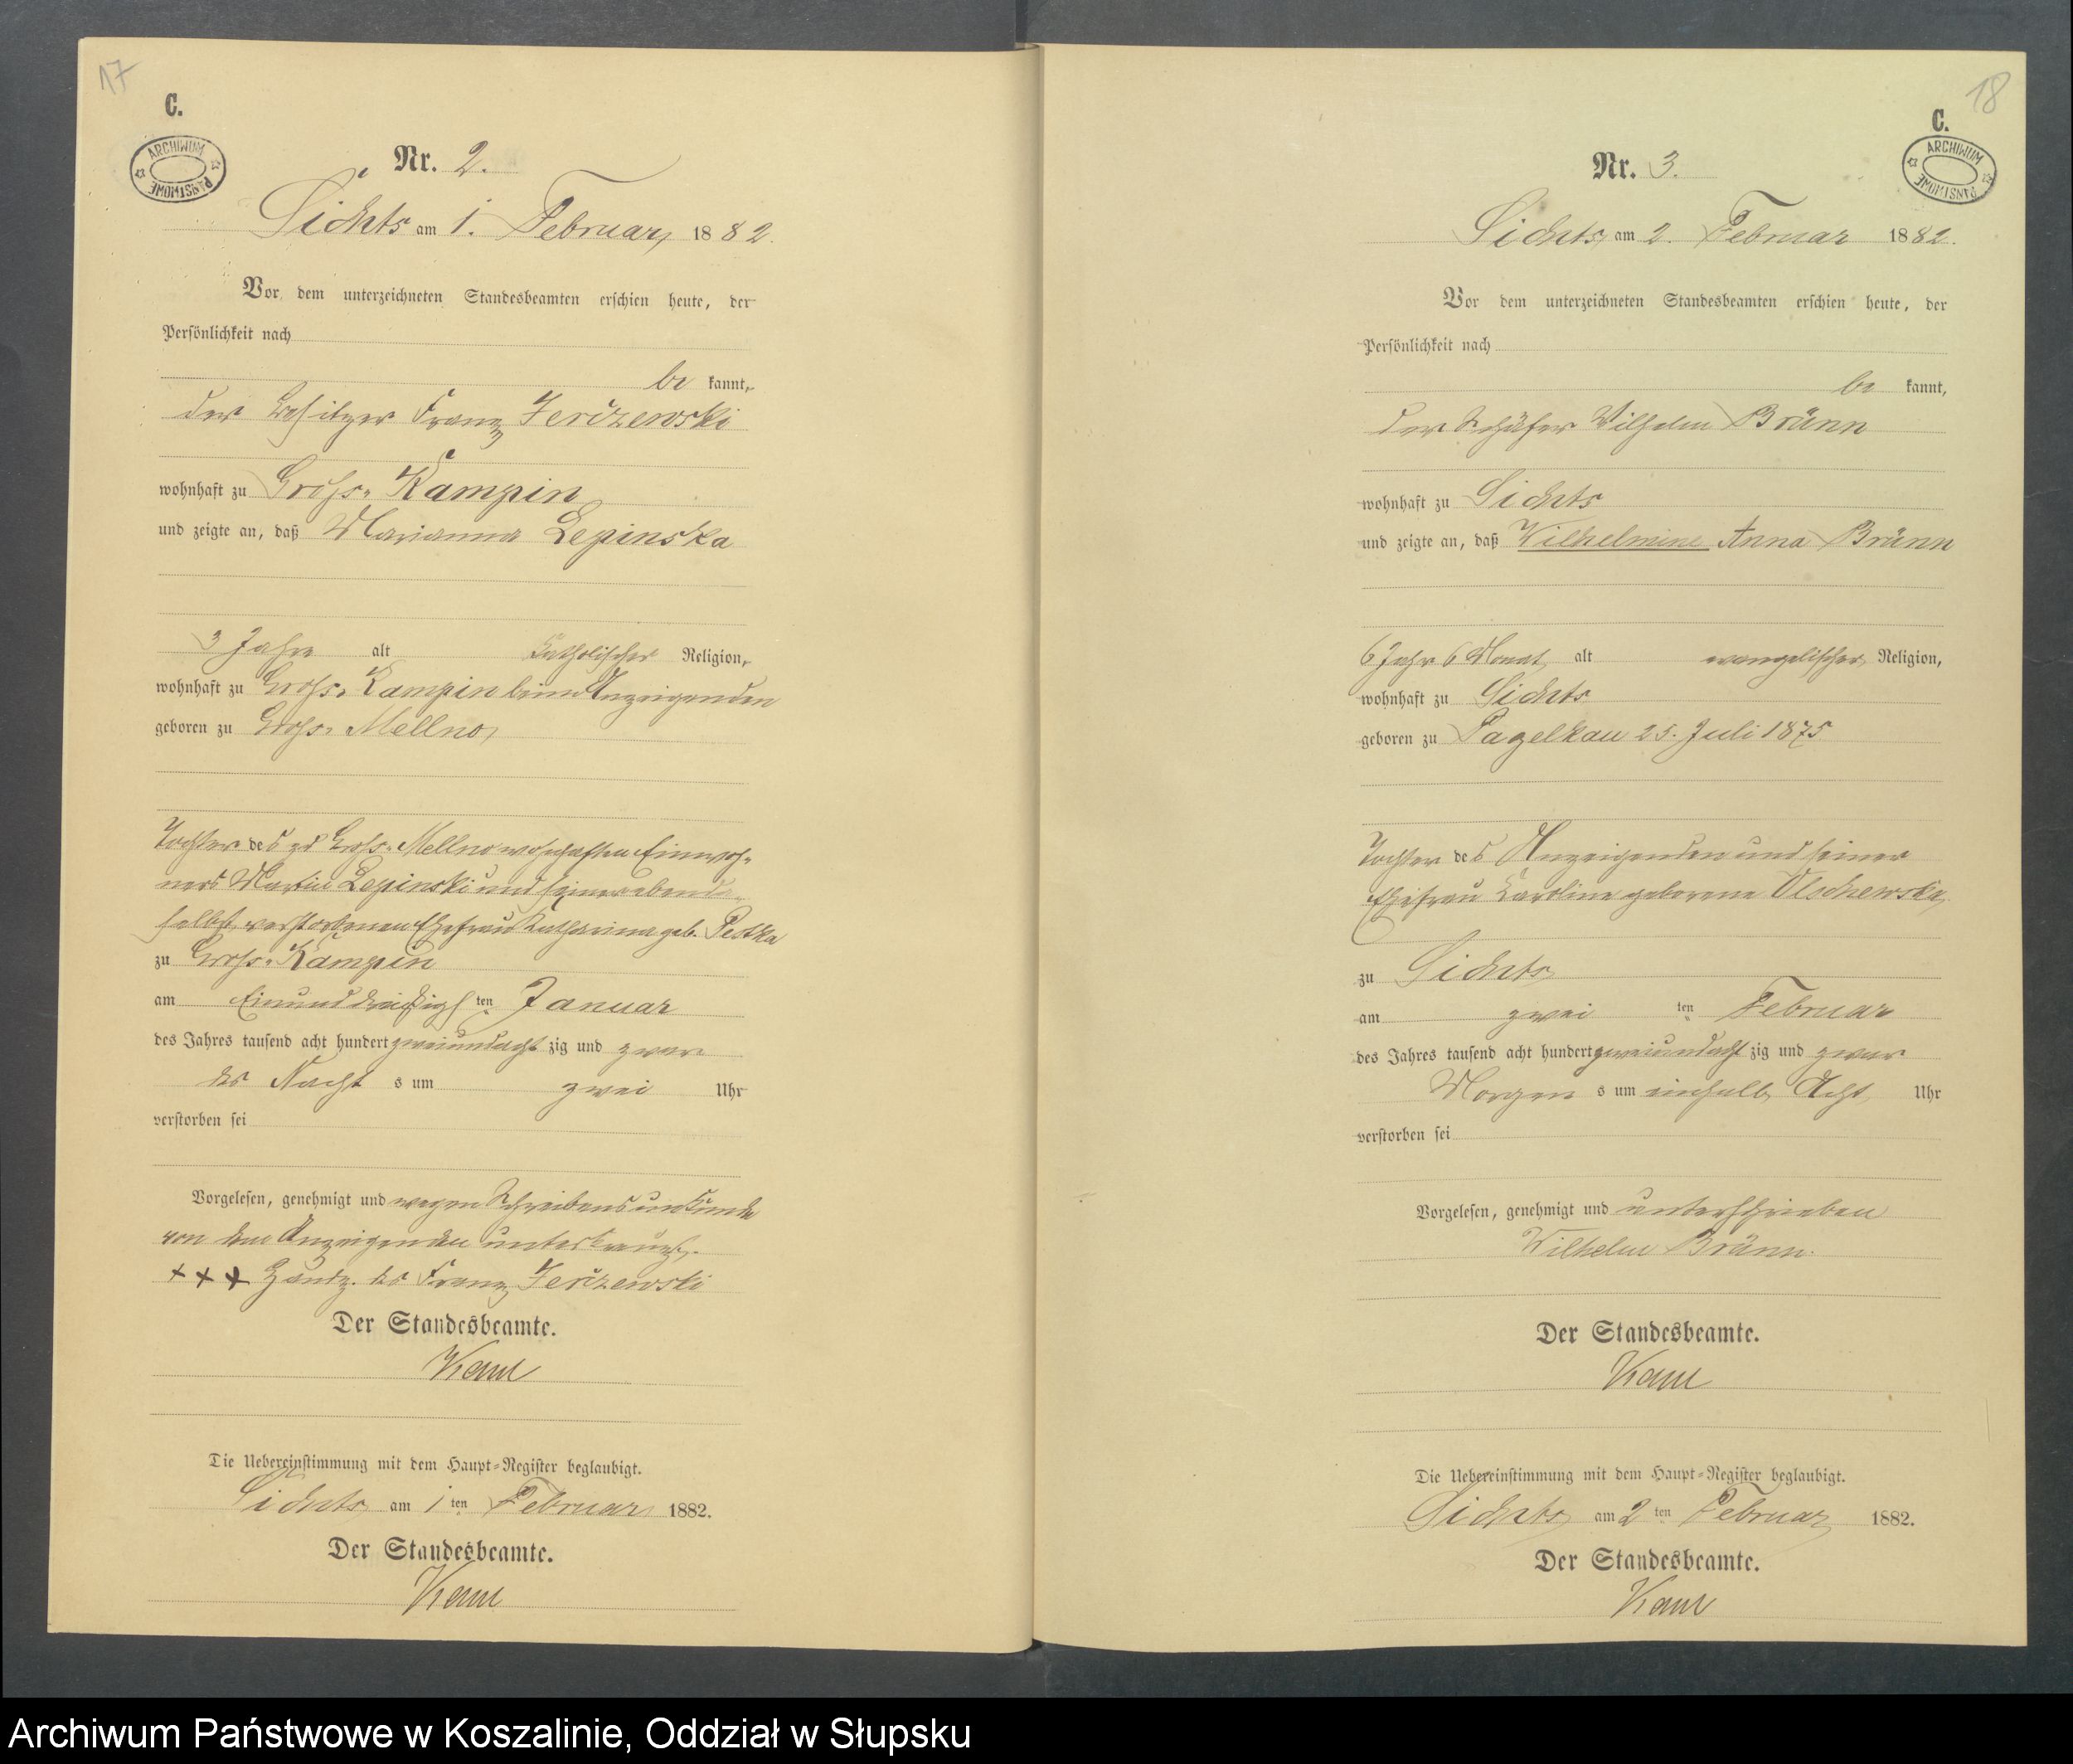 17
C.
ARCHIWUM PAŃSTWOWE
Nr. 2.
Lichts am 1. Februar 1882.
Vor dem unterzeichneten Standesbeamten erschien heute, der
Persönlichkeit nach
be kannt,
der Besitzer Franz Jerizewski
wohnhaft zu Gross-Kampin
und zeigte an, daß Marianna Lepinska
3 Jahre alt katholischer Religion,
wohnhaft zu Gross-Kampin beim Anzeigenden
geboren zu Gross-Mellno
Tochter des zu Gross-Mellno wohnhaften Einwoh-
ners Martin Lepinski und seiner ebenda-
selbst verstorbenen Ehefrau Katharina geb. Pestka
zu Gross-Kampin
am Einunddreißigsten Januar
des Jahres tausend acht hundert zweiundacht zig und zwar
des Nacht s um zwei Uhr
verstorben sei
Vorgelesen, genehmigt und wegen Schreibensunkunde
von dem Anzeigenden unterkreuzt.
+++ Handz. des Franz Jerizewski
Der Standesbeamte.
Die Uebereinstimmung mit dem Haupt-Register beglaubigt.
Lichts am 1 ten Februar 1882.
Der Standesbeamte.
18
C.
ARCHIWUM PAŃSTWOWE
Nr. 3.
Lichts am 2. Februar 1882.
Vor dem unterzeichneten Standesbeamten erschien heute, der
Persönlichkeit nach
be kannt,
der Schäfer Wilhelm Brünn
wohnhaft zu Lichts
und zeigte an, daß Wilhelmine Anna Brünn
6 Jahr 6 Monat alt evangelischer Religion,
wohnhaft zu Lichts
geboren zu Pagelkau 25. Juli 1875
Tochter des Anzeigenden und seiner
Ehefrau Karoline geborene Olschewska
zu Lichts
am zwei ten Februar
des Jahres tausend acht hundert zweiundacht zig und zwar
Morgen s um einhalb Acht Uhr
verstorben sei
Vorgelesen, genehmigt und unterschrieben
Wilhelm Brünn.
Der Standesbeamte.
Die Uebereinstimmung mit dem Haupt-Register beglaubigt.
Lichts am 2 ten Februar 1882.
Der Standesbeamte.
Archiwum Państwowe w Koszalinie, Oddział w Słupsku